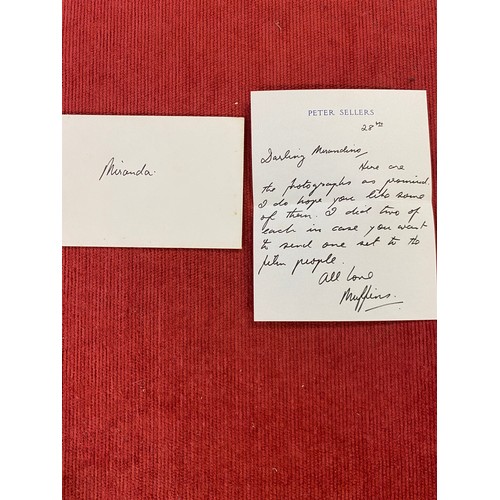 Miranda.
PETER SELLERS
28th
Darling Mirandino,
Here are
the photographs as promised.
I do hope you like some
of them. I did two of
each in case you want
to send one set to the
film people.
All love
Muffins.